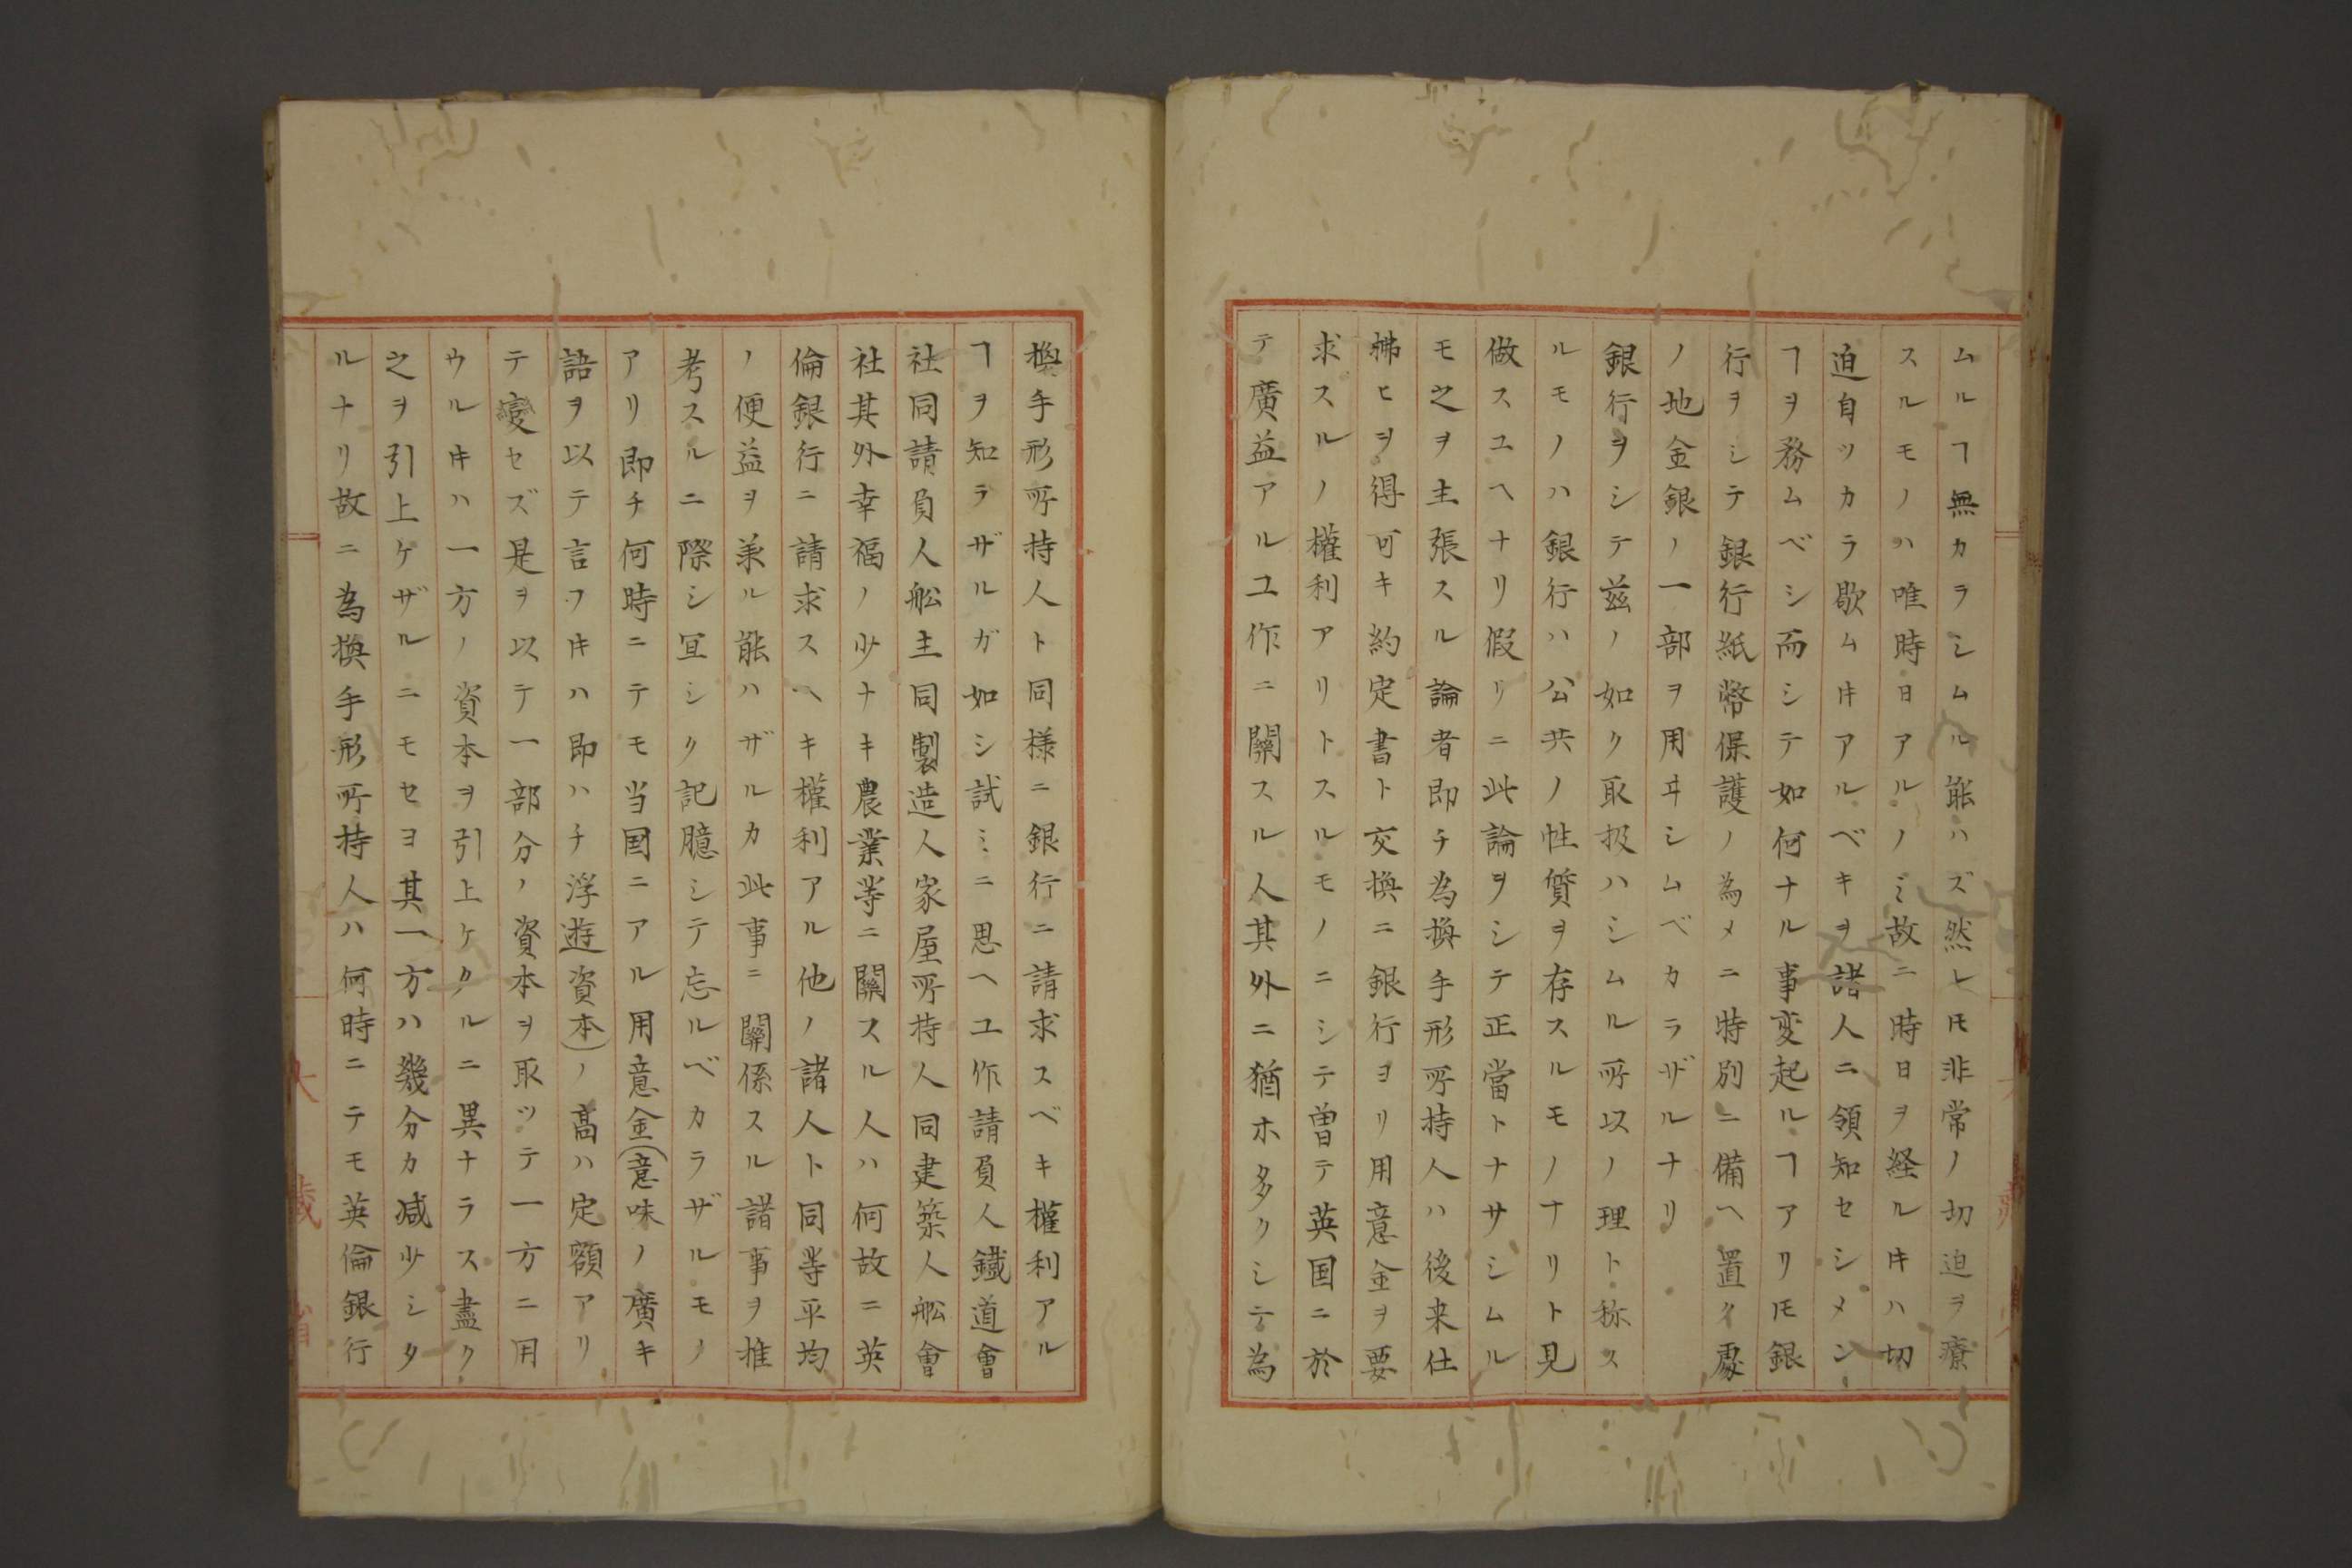 ムルヿ無カラシムル能ハズ然レ𪜈非常ノ切迫ヲ療
スルモノハ唯時日アルノミ故ニ時日ヲ経ルキハ切
迫自ツカラ歇ムキアルベキヲ諸人ニ領知セシメン
ヿヲ務ムベシ而シテ如何ナル事変起ルヿアリ𪜈銀
行ヲシテ銀行紙幣保護ノ為メニ特別ニ備ヘ置タ處
ノ地金銀ノ一部ヲ用ヰシムベカラザルナリ
銀行ヲシテ茲ノ如ク取扱ハシムル所以ノ理ト称ス
ルモノハ銀行ハ公共ノ性質ヲ存スルモノナリト見
做スユヘナリ假リニ此論ヲシテ正當トナサシムル
モ之ヲ主張スル論者即チ為換手形所持人ハ後来仕
拂ヒヲ得可キ約定書ト交換ニ銀行ヨリ用意金ヲ要
求スルノ權利アリトスルモノニシテ曽テ英国ニ於
テ廣益アルユ作ニ關スル人其外ニ猶ホ多クシテ為
換手形所持人ト同様ニ銀行ニ請求スベキ權利アル
ヿヲ知ラザルガ如シ試ミニ思ヘユ作請負人鐵道會
社同請負人舩主同製造人家屋所持人同建築人舩會
社其外幸福ノ少ナキ農業等ニ關スル人ハ何故ニ英
倫銀行ニ請求スヘキ權利アル他ノ諸人ト同等平均
ノ便益ヲ兼ル能ハザルカ此事ニ關係スル諸事ヲ推
考スルニ際シ冝シク記臆シテ忘ルベカラザルモノ
アリ即チ何時ニテモ当国ニアル用意金(意味ノ廣キ
語ヲ以テ言フキハ即ハチ浮遊資本)ノ髙ハ定額アリ
テ変セズ是ヲ以テ一部分ノ資本ヲ取ッテ一方ニ用
ウルキハ一方ノ資本ヲ引上ケクルニ異ナラス盡ク
之ヲ引上ケザルニモセヨ其一方ハ幾分カ減少シタ
ルナリ故ニ為換手形所持人ハ何時ニテモ英倫銀行
大藏省